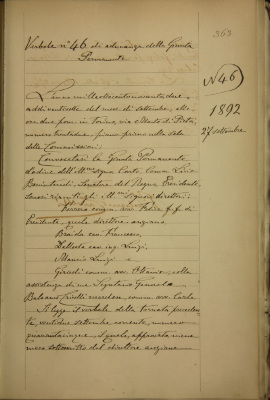 363
Verbale n° 46 di adunanza della Giunta
Permanente
N 46
1892
27 settembre
L'anno milleottocentonovantadue,
addì ventisette del mese di settembre, alle
ore due pom. in Torino, via
numero trentadue, primo piano nella sala
delle Commissioni;
Convocatasi la Giunta Permanente
d'ordine dell'Ill.mo signor Conte Comm. Luigi
Senatore del Regno, Presidente,
sonosi riuniti gli Ill.mi signori direttori:
Ferraris cav. f.f. di
Presidente, quale direttore anziano
Francesco,
cav. ing. Luigi,
Luigi e
comm. avv. colla
assistenza di me Segretario Generale
comm. avv. Carlo
Si legge il verbale della tornata precedente,
ventidue settembre corrente, numero
quarantacinque, il quale, approvato viene
meco sottoscritto dal direttore anziano